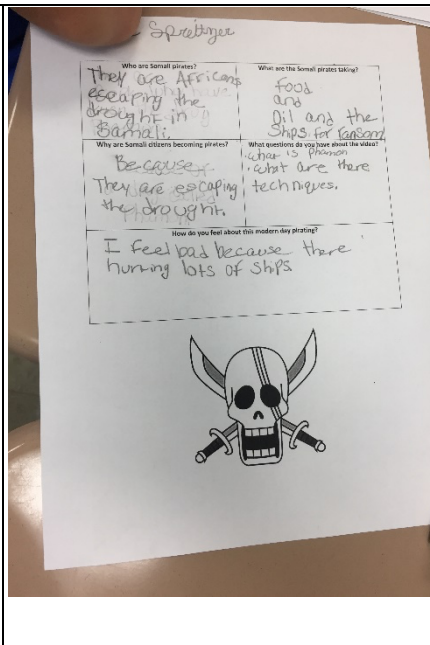 Sprettzer
Who are Somali pirates?
They are Africans
escaping the
drought in
Samali.
What are the Somali pirates taking?
Food
and
Oil and the
Ships for ransom
Why are Somali citizens becoming pirates?
Because
They are escaping
the drought.
What questions do you have about the video?
·what is
·what are there
techniques.
How do you feel about this modern day pirating?
I feel bad because there
hurring lots of ships